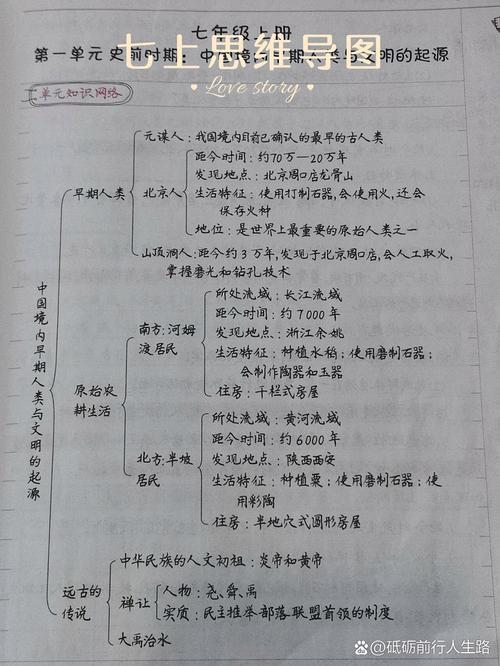 七年级上册
第一单元 史前时期：中国境内早期人类与文明的起源
七上思维导图
Love story
单元知识网络
中国境内早期人类与文明的起源
早期人类
元谋人：我国境内目前已确认的最早的古人类
北京人
距今时间：约70万—20万年
发现地点：北京周口店龙骨山
生活特征：使用打制石器，会使用火，还会
保存火种
地位：是世界上最重要的原始人类之一
山顶洞人：距今约3万年，发现于北京周口店，会人工取火，
掌握磨光和钻孔技术
原始农
耕生活
南方：河姆
渡居民
所处流域：长江流域
距今时间：约7000年
发现地点：浙江余姚
生活特征：种植水稻；使用磨制石器；
会制作陶器和玉器
住房：干栏式房屋
北方：半坡
居民
所处流域：黄河流域
距今时间：约6000年
发现地点：陕西西安
生活特征：种植粟；使用磨制石器；使
用彩陶
住房：半地穴式圆形房屋
远古的
传说
中华民族的人文初祖：炎帝和黄帝
禅让
人物：尧、舜、禹
实质：民主推举部落联盟首领的制度
大禹治水
@砥砺前行人生路